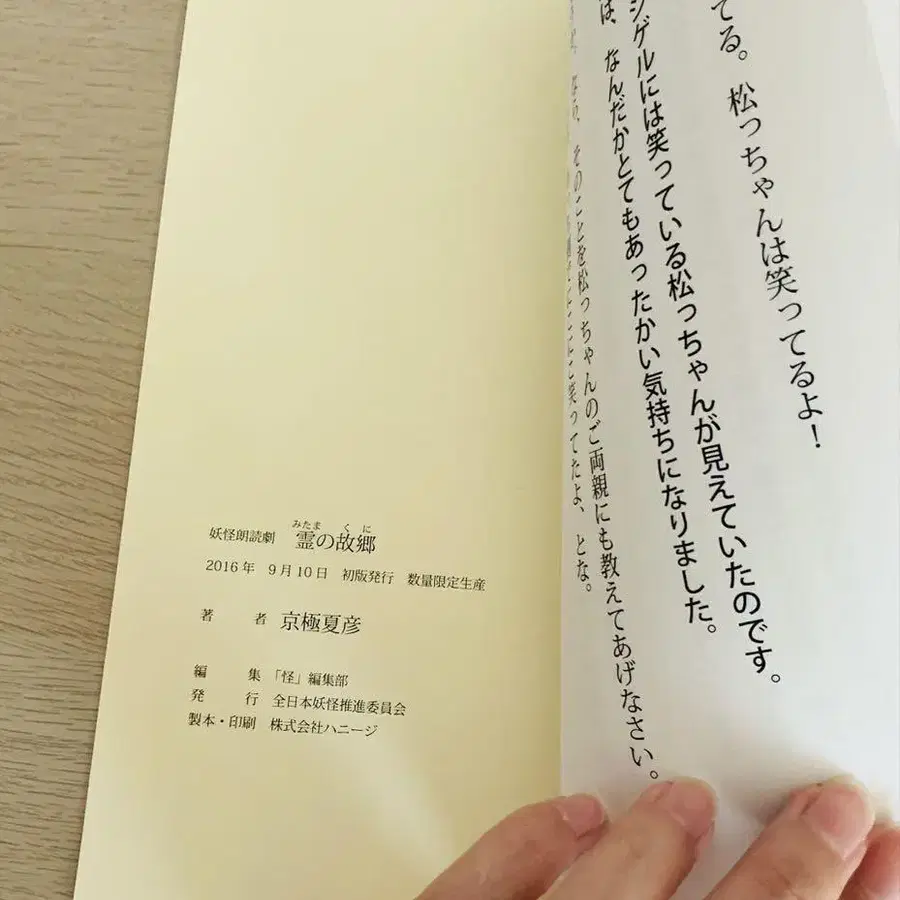 てる。松っちゃんは笑ってるよ！
シゲルには笑っている松っちゃんが見えていたのです。
は、なんだかとてもあったかい気持ちになりました。
そのことを松っちゃんのご両親にも教えてあげなさい。
笑ってたよ、とな。
妖怪朗読劇 霊の故郷
みたま くに
2016年 9月10日 初版発行 数量限定生産
著 者 京極夏彦
編 集 「怪」編集部
発 行 全日本妖怪推進委員会
製本・印刷 株式会社ハニージ